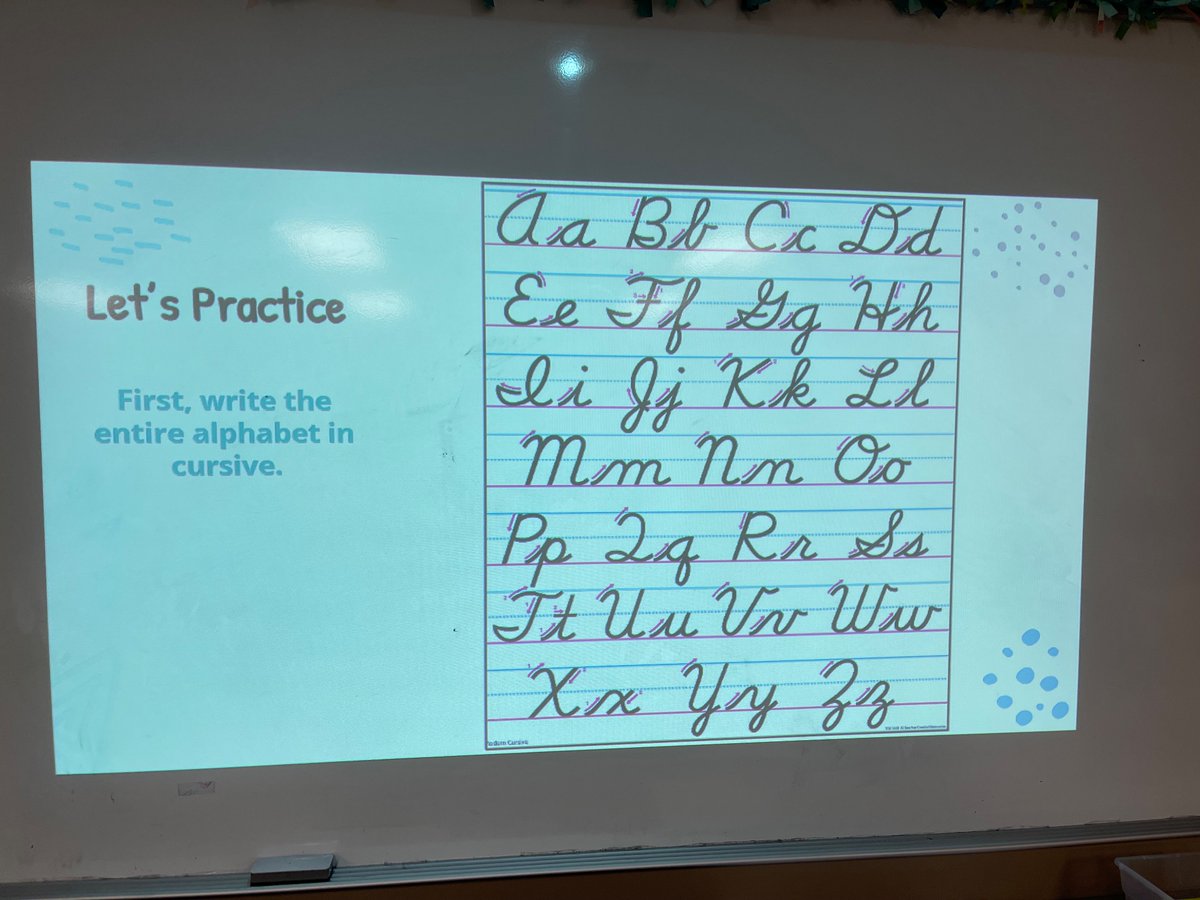 Let's Practice
First, write the
entire alphabet in
cursive.
Aa Bb Cc Dd
Ee Ff Gg Hh
Ii Jj Kk Ll
Mm Nn Oo
Pp Qq Rr Ss
Tt Uu Vv Ww
Xx Yy Zz
Cursive